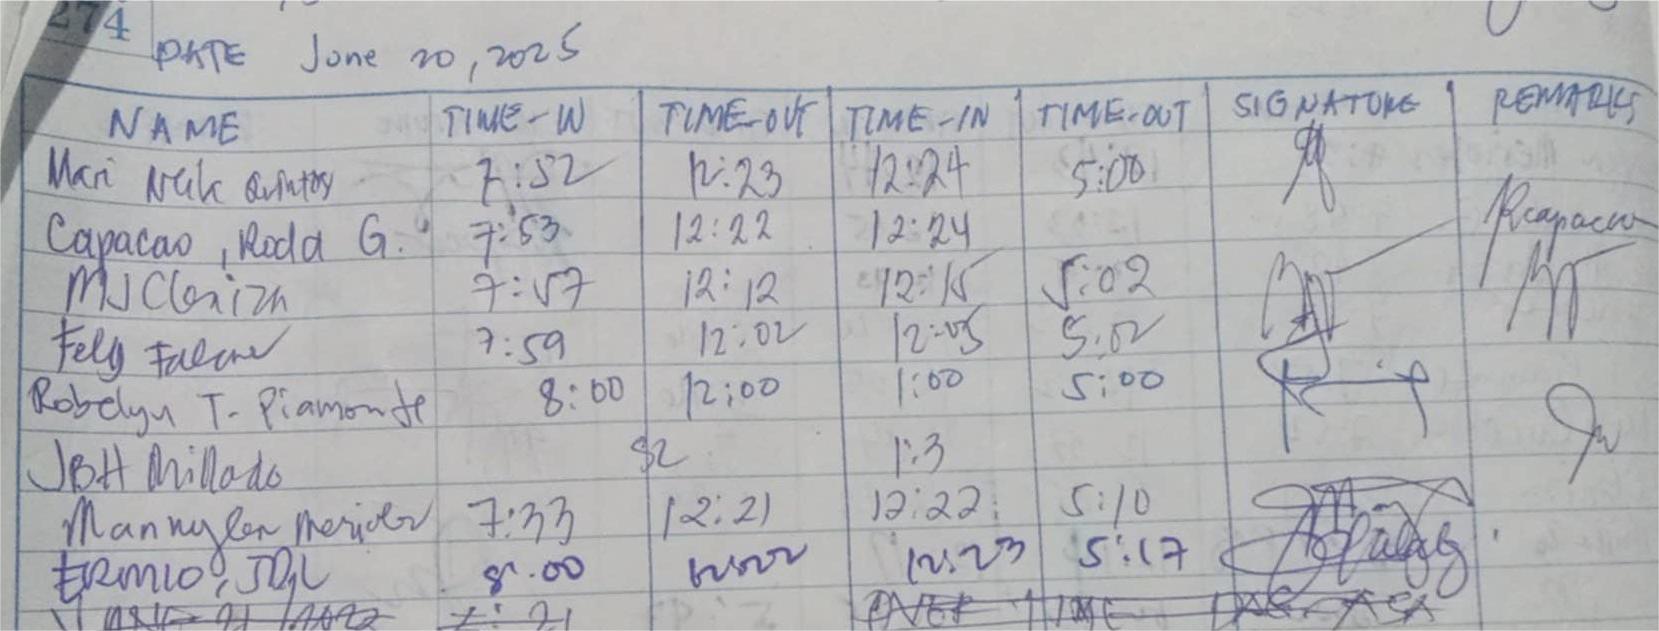 274
DATE June 20, 2025
NAME TIME-IN TIME-OUT TIME-IN TIME-OUT SIGNATURE REMARKS
Mari Neik Quintos 7:52 12:23 12:24 5:00
Capacao, Roda G. 7:53 12:22 12:24 Rcapacao
MJ Cleriza 7:57 12:12 12:15 5:02
Fely 7:59 12:02 12:05 5:02
Robelyn T. Piamonte 8:00 12:00 1:00 5:00
JBH Millado 82 1:3
Mannylen 7:33 12:21 12:22 5:10
ERMIO, JD,L 8:00 12:22 12:23 5:17
7:21 OVER TIME